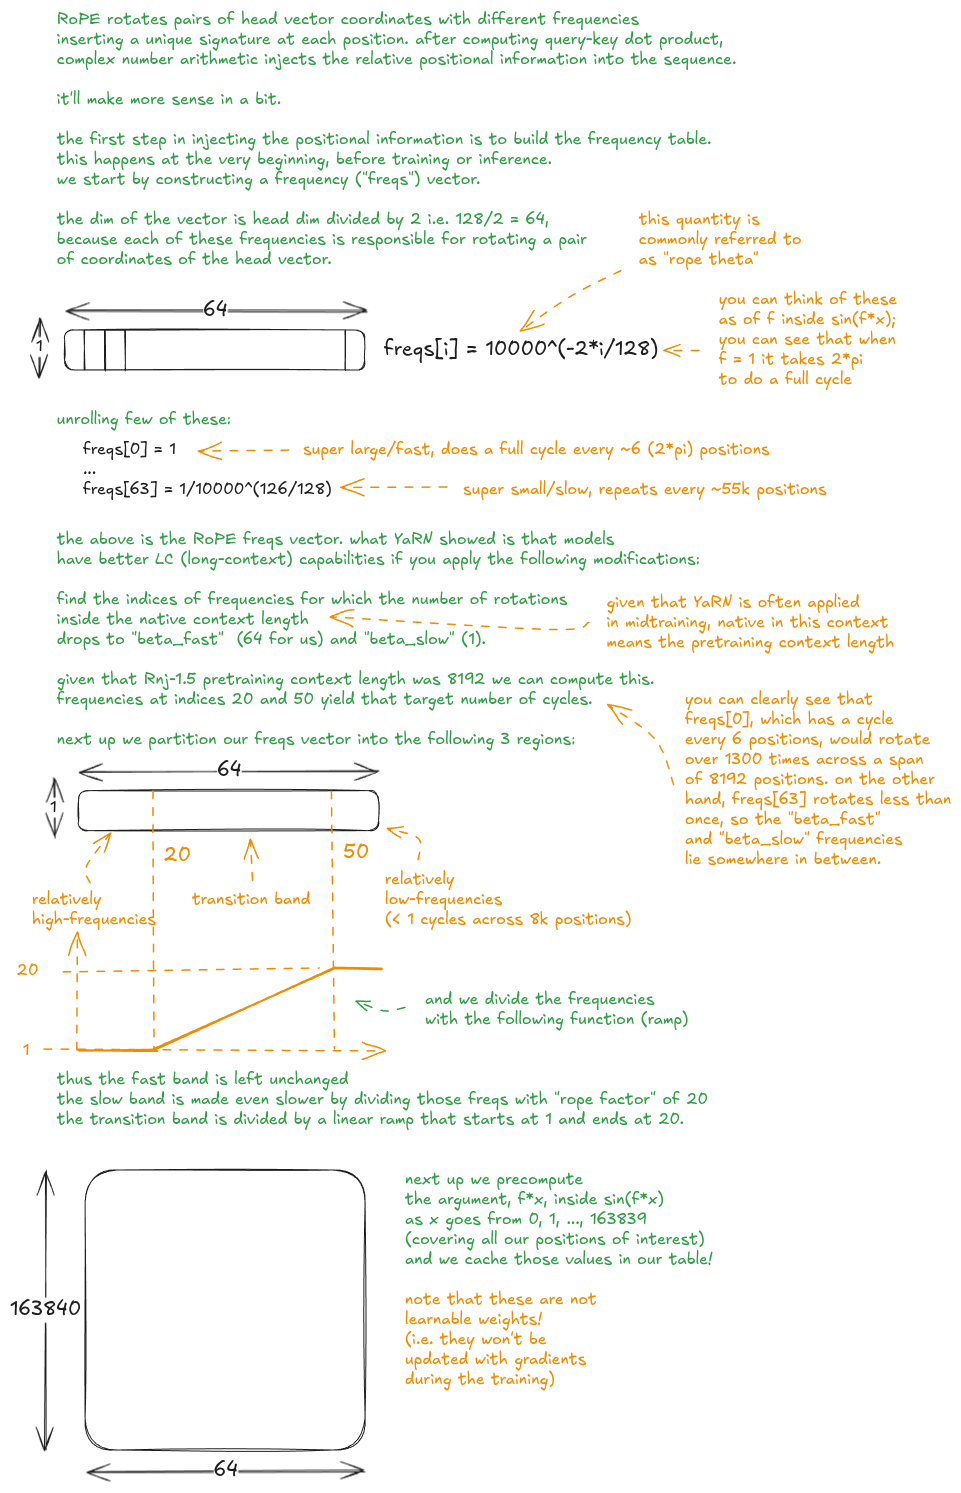 RoPE rotates pairs of head vector coordinates with different frequencies
inserting a unique signature at each position. after computing query-key dot product,
complex number arithmetic injects the relative positional information into the sequence.
it'll make more sense in a bit.
the first step in injecting the positional information is to build the frequency table.
this happens at the very beginning, before training or inference.
we start by constructing a frequency ("freqs") vector.
the dim of the vector is head dim divided by 2 i.e. 128/2 = 64,
because each of these frequencies is responsible for rotating a pair
of coordinates of the head vector.
this quantity is
commonly referred to
as "rope theta"
64
1
freqs[i] = 10000^(-2*i/128)
you can think of these
as of f inside sin(f*x);
you can see that when
f = 1 it takes 2*pi
to do a full cycle
unrolling few of these:
freqs[0] = 1
super large/fast, does a full cycle every ~6 (2*pi) positions
...
freqs[63] = 1/10000^(126/128)
super small/slow, repeats every ~55k positions
the above is the RoPE freqs vector. what YaRN showed is that models
have better LC (long-context) capabilities if you apply the following modifications:
find the indices of frequencies for which the number of rotations
inside the native context length
drops to "beta_fast"  (64 for us) and "beta_slow" (1).
given that YaRN is often applied
in midtraining, native in this context
means the pretraining context length
given that Rnj-1.5 pretraining context length was 8192 we can compute this.
frequencies at indices 20 and 50 yield that target number of cycles.
you can clearly see that
freqs[0], which has a cycle
every 6 positions, would rotate
over 1300 times across a span
of 8192 positions. on the other
hand, freqs[63] rotates less than
once, so the "beta_fast"
and "beta_slow" frequencies
lie somewhere in between.
next up we partition our freqs vector into the following 3 regions:
64
1
20
50
relatively
high-frequencies
transition band
relatively
low-frequencies
(< 1 cycles across 8k positions)
20
1
and we divide the frequencies
with the following function (ramp)
thus the fast band is left unchanged
the slow band is made even slower by dividing those freqs with "rope factor" of 20
the transition band is divided by a linear ramp that starts at 1 and ends at 20.
163840
64
next up we precompute
the argument, f*x, inside sin(f*x)
as x goes from 0, 1, ..., 163839
(covering all our positions of interest)
and we cache those values in our table!
note that these are not
learnable weights!
(i.e. they won't be
updated with gradients
during the training)